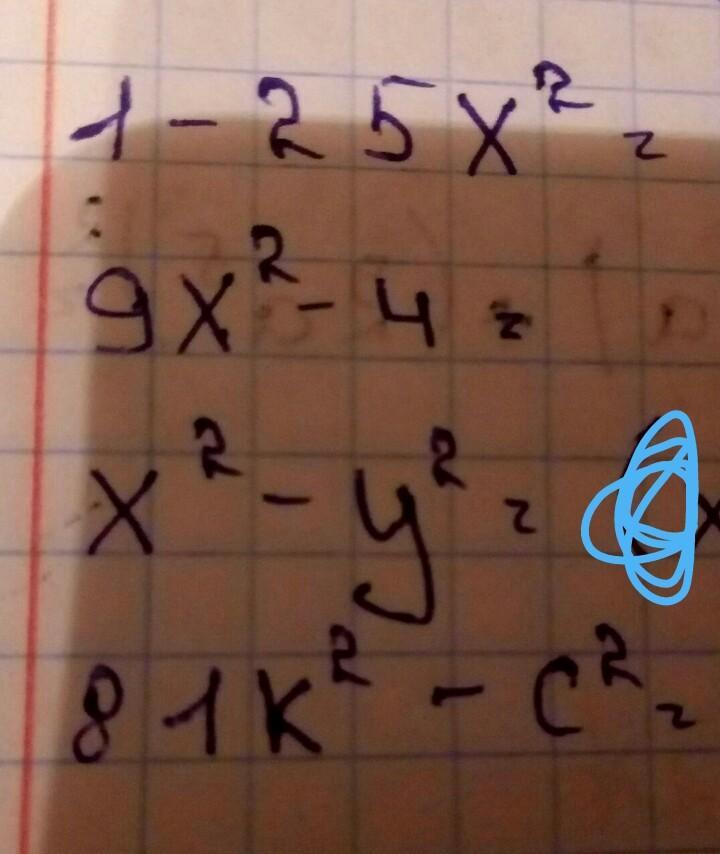 1 - 25x² =
9x² - 4 =
x² - y² =
81k² - c² =